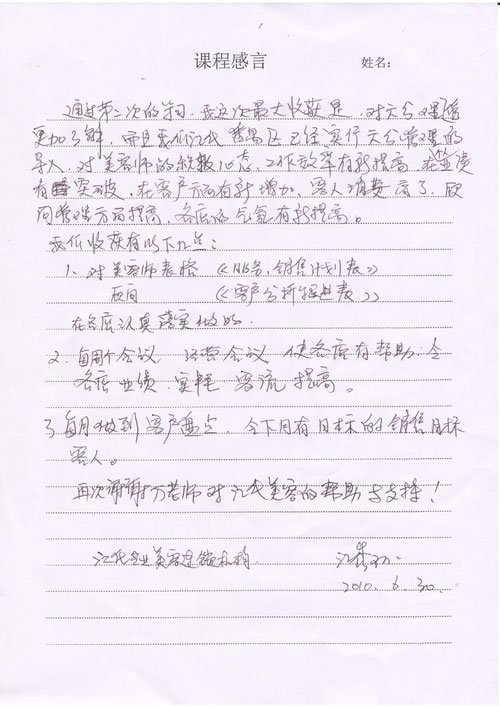 课程感言 姓名：
通过第二次的学习，我这次最大收获是，对六分管理
更加了解，而且我们江氏 区已经实行六分管理的
导入，对美容师的 心态，工作效率有新提高，在业绩
有 突破，在客户方面有新增加，客人消费高了，顾
问管理方面提高，各店的气氛有新提高。
我们收获有以下几点：
1、对美容师表格《服务、销售计划表》
顾问《客户分析 表》
在各店认真落实做好。
2、每周个会议，运营会议，使各店有帮助，令
各店业绩、实耗、客流提高。
3 每月做到客户盘点，令下月有目标的销售目标
客人。
再次谢谢万老师对江氏美容的帮助与支持！
江氏专业美容连锁机构 江
2010.6.30.